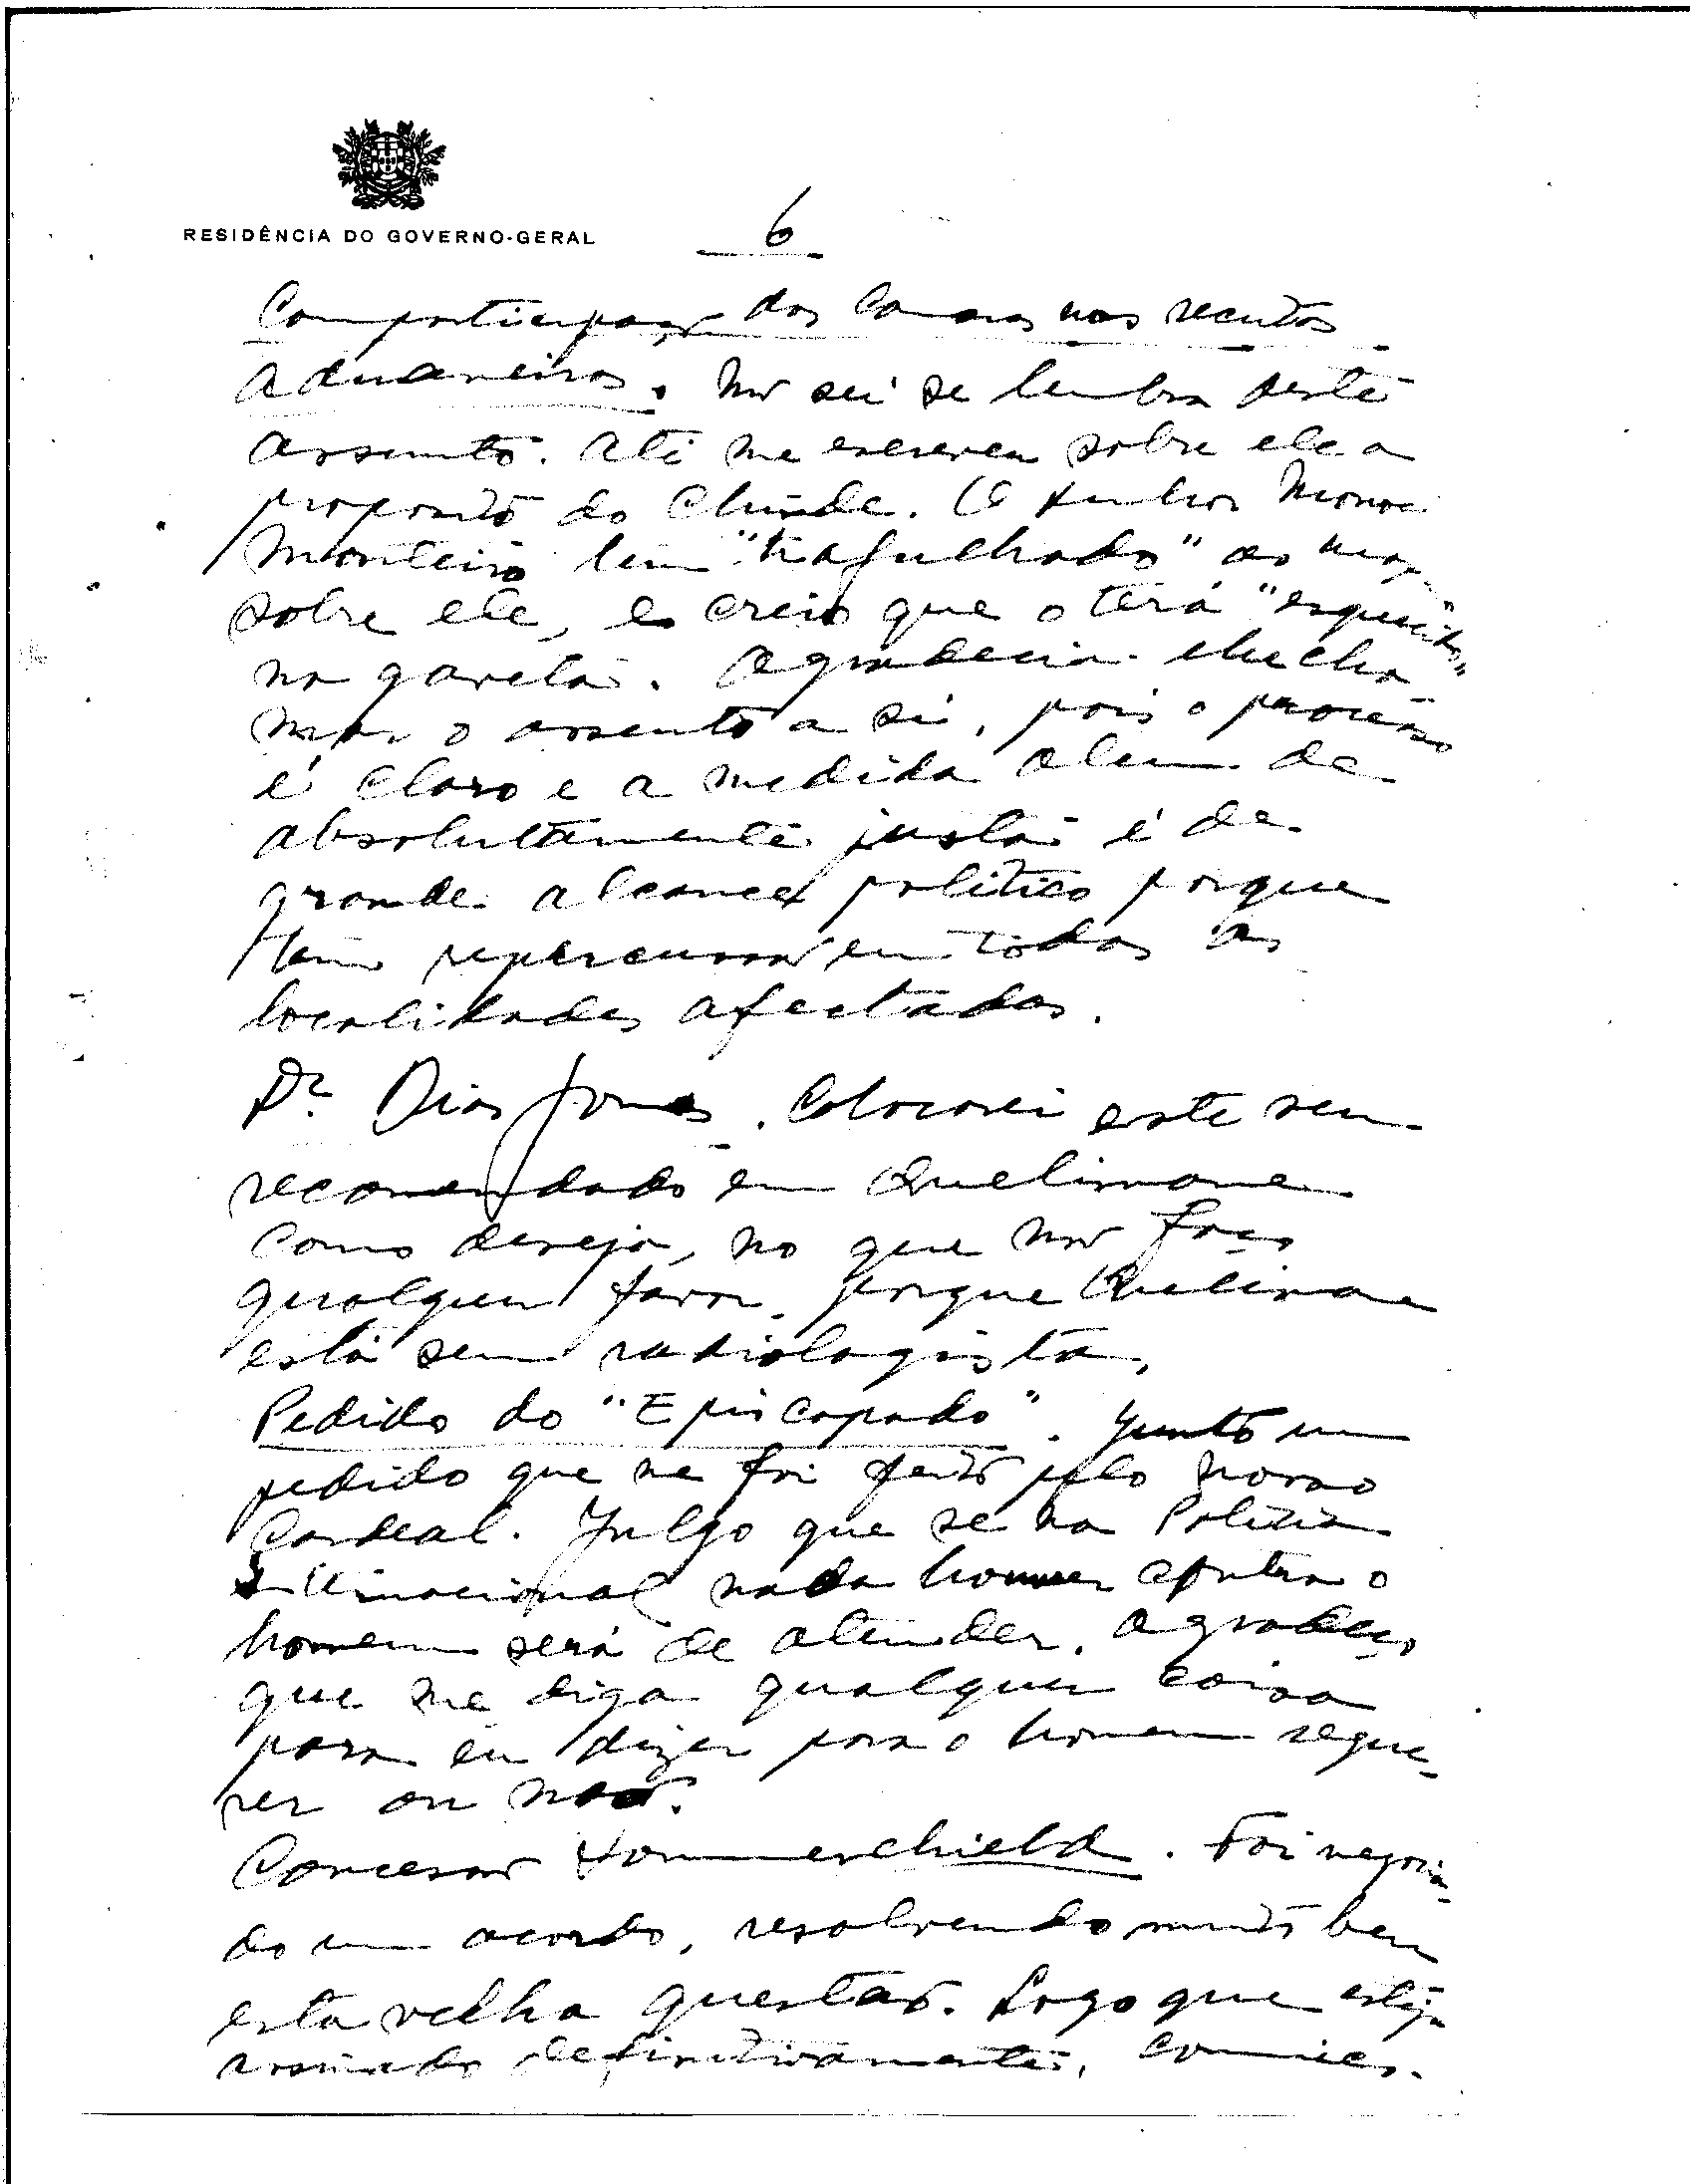 RESIDÊNCIA DO GOVERNO-GERAL
6
Comparticipação das Camaras nas receitas
aduaneiras. Não sei se lembra deste
assunto. Até me escreveu sobre ele a
proposito do Chinde. O senhor
Monteiro tem "trafulhado" ao
sobre ele, e creio que o terá "esquecido"
na gaveta. Agradecia-lhe cha-
mar o assunto a si, pois o processo
é claro e a medida alem de
absolutamente justa é de
grande alcance politico porque
tem repercussão em todas as
localidades afectadas.
Dr. Dias Gomes. Colocarei este seu
recomendado em Quelimane
como deseja, no que não faço
qualquer favor, porque Quelimane
está sem radiologista.
Pedido do "Episcopado". Junto um
pedido que me foi feito pelo nosso
Cardeal. Julgo que se na Policia
Internacional nada houver contra o
homem será de atender. Agradeço
que me diga qualquer coisa
para eu dizer para o homem reque-
rer ou não.
Concessão Sommerchield. Foi negocia-
do um acordo, resolvendo muito bem
esta velha questão. Logo que esteja
assinado definitivamente, comunico.